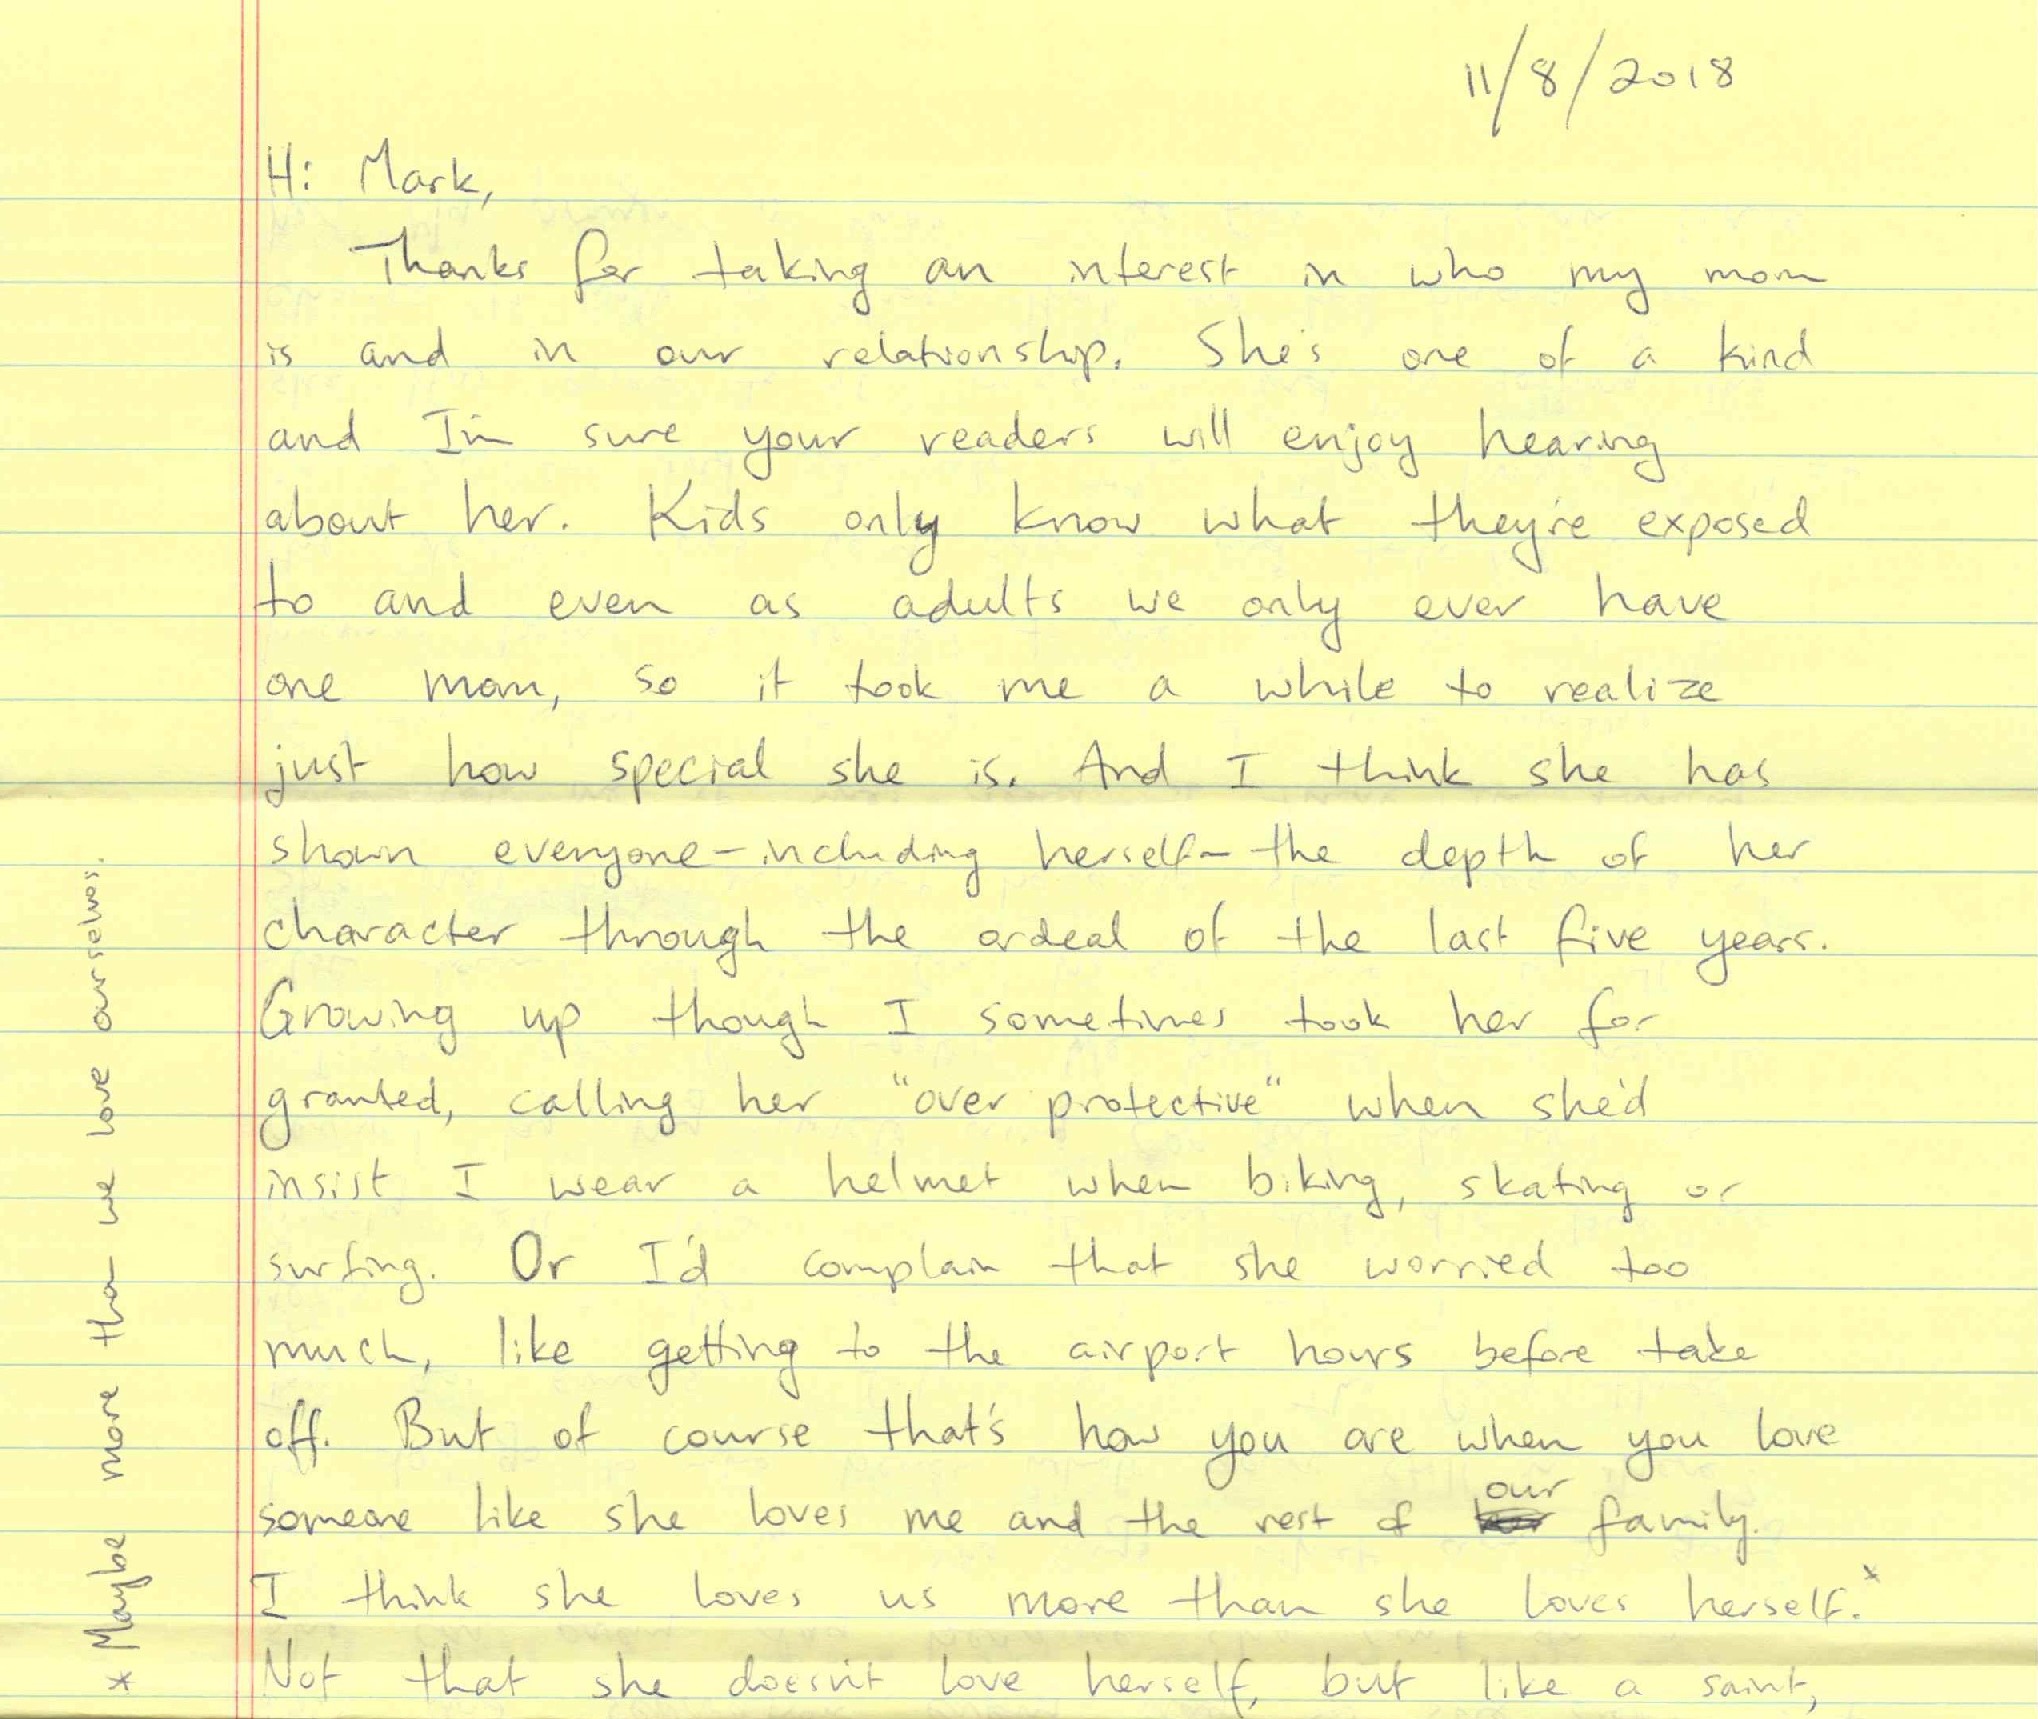 11/8/2018
Hi Mark,
Thanks for taking an interest in who my mom
is and in our relationship. She's one of a kind
and I'm sure your readers will enjoy hearing
about her. Kids only know what they're exposed
to and even as adults we only ever have
one mom, so it took me a while to realize
just how special she is. And I think she has
shown everyone-including herself-the depth of her
character through the ordeal of the last five years.
Growing up though I sometimes took her for
granted, calling her "over protective" when she'd
insist I wear a helmet when biking, skating or
surfing. Or I'd complain that she worried too
much, like getting to the airport hours before take
off. But of course that's how you are when you love
someone like she loves me and the rest of our family.
I think she loves us more than she loves herself.*
Not that she doesn't love herself, but like a saint,
* Maybe more than we love ourselves.